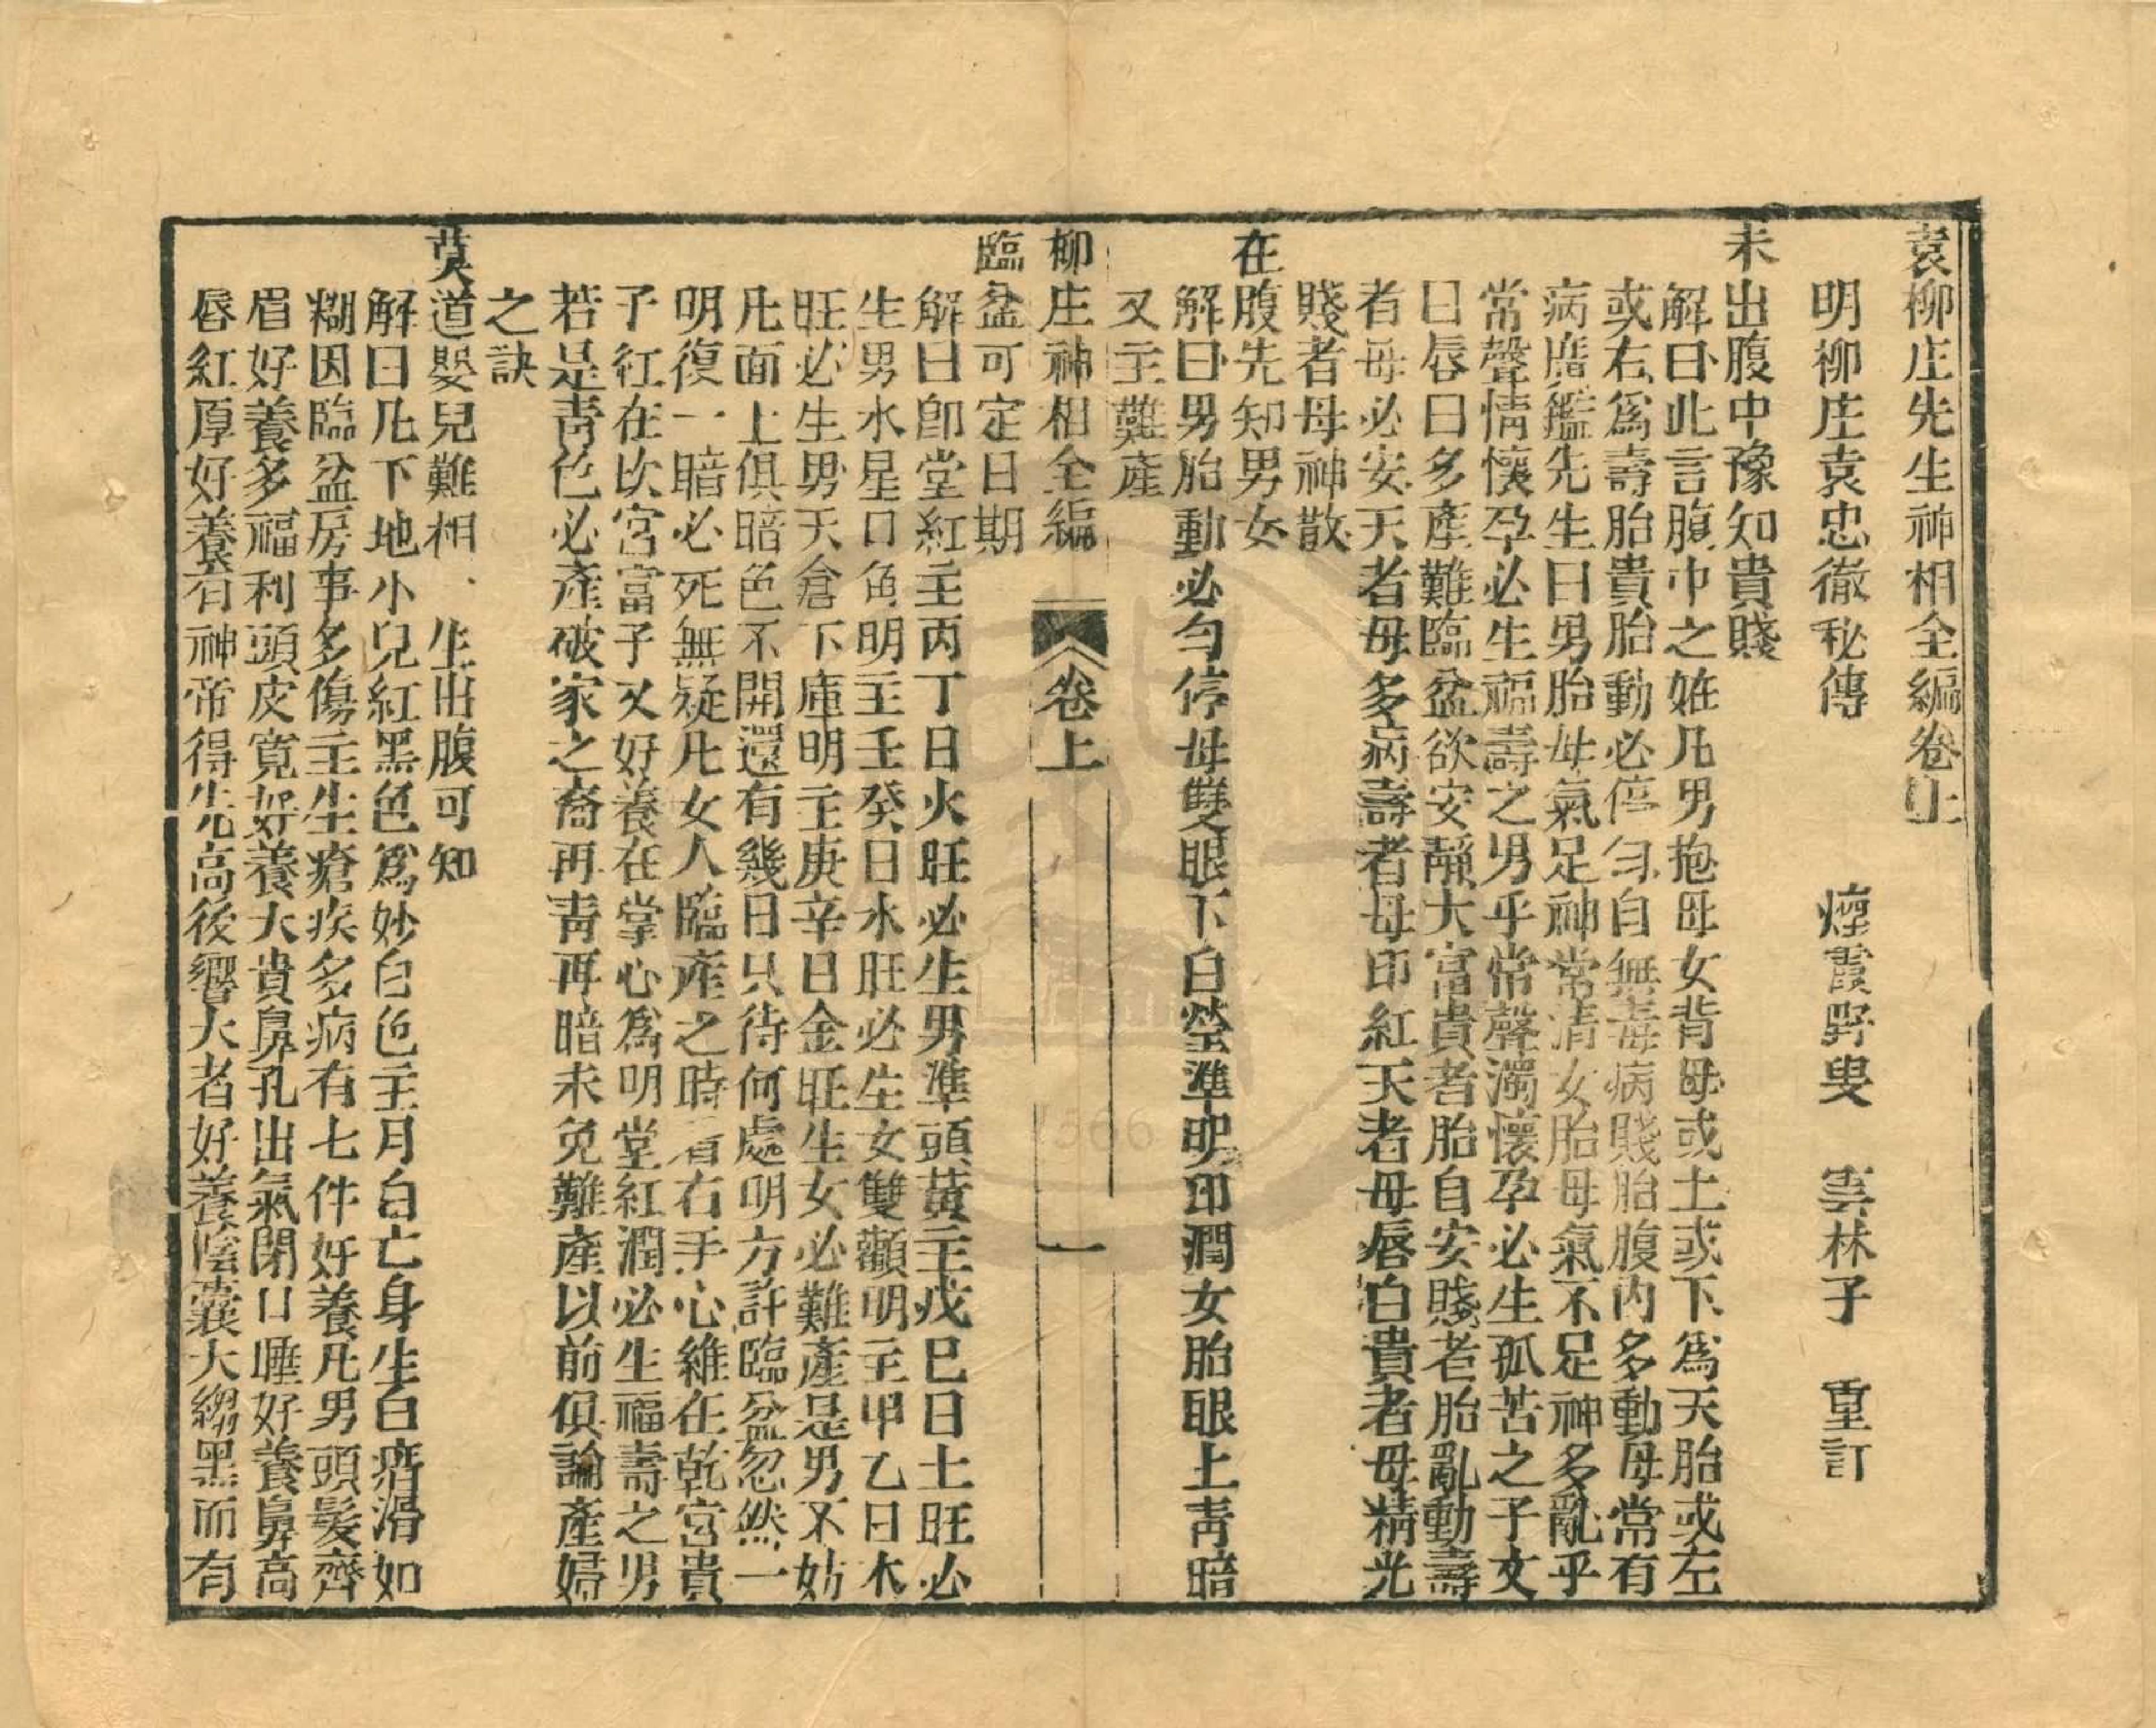 袁柳庄先生神相全編卷上
明柳庄袁忠徹秘傳 煙霞野叟 雲林子 重訂
未出腹中豫知貴賤
解曰此言腹中之姙凡男抱母女背母或土或下為天胎或左
或右為壽胎貴胎動必停勻自無毒病賤胎腹內多動母常有
病唐鑑先生曰男胎母氣足神常清女胎母氣不足神多亂乎
常聲情懷孕必生福壽之男乎常聲濁懷孕必生孤苦之子女
曰唇曰多產難臨盆欲安靜大富貴者胎自安賤者胎亂動壽
者母必安天者母多病壽者母印紅天者母唇白貴者母精光
賤者母神散
在腹先知男女
解曰男胎動必勻停母雙眼下白瑩準明印潤女胎眼上青暗
又主難產
柳庄神相全編 卷上 一
臨盆可定日期
解曰卽堂紅主丙丁日火旺必生男準頭黃主戊巳日土旺必
生男水星口角明主壬癸日水旺必生女雙顴明主甲乙日木
旺必生男天倉下庫明主庚辛日金旺生女必難產是男不妨
凡面上俱暗色不開還有幾日只待何處明方許臨盆忽然一
明復一暗必死無疑凡女人臨產之時看右手心維在乾宮貴
子紅在坎宮富子又好養在掌心為明堂紅潤必生福壽之男
若是青色必產破家之裔再青再暗未免難產以前俱論產婦
之訣
莫道嬰兒難相、生出腹可知
解曰凡下地小兒紅黑色為妙白色主月白亡身生白瘠滑如
糊因臨盆房事多傷主生瘡疾多病有七件好養凡男頭髮齊
眉好養多福利頭皮寬好養大貴鼻孔出氣閉口睡好養鼻高
唇紅厚好養有神帝得先高後響大者好養陰囊大縐黑而有